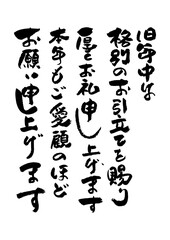 旧年中は
格別のお引立てを賜り
厚くお礼申し上げます
本年もご愛顧のほど
お願い申し上げます